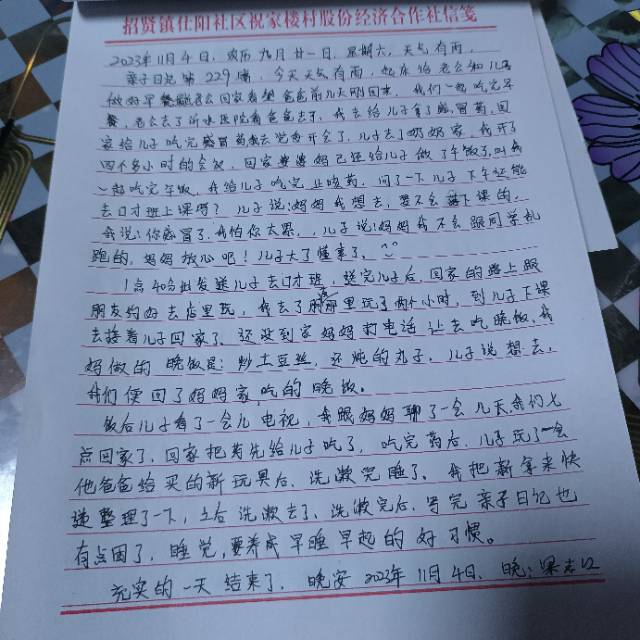 招贤镇仕阳社区祝家楼村股份经济合作社信笺
2023年11月4日，农历九月廿一日，星期六，天气有雨，
亲子日记第229篇，今天天气有雨，起床给老公和儿子
做好早餐回家看望爸爸前几天刚回来，我们一起吃完早
餐，老公去了沂水医院看爸爸去了，我去给儿子拿了感冒药，回
家给儿子吃完感冒药我去党委开会了，儿子去了奶奶家，我开了
四个多小时的会议，回家婆婆妈已经给儿子做了午饭了，叫我
一起吃完午饭，我给儿子吃完止咳药，问了一下儿子下午还能
去口才班上课吗？儿子说：妈妈我想去，要不会落下课的，
我说：你感冒了，我怕你太累，儿子说：妈妈我不会跟同学乱
跑的，妈妈放心吧！儿子大了懂事了，
1点40分出发送儿子去口才班，送完儿子后，回家的路上跟
朋友约好去店里玩，我去了店里玩了两个小时，到儿子下课
去接着儿子回家了，还没到家妈妈打电话让去吃晚饭，我
妈做的晚饭是：炒土豆丝，还炖的丸子，儿子说想去，
我们便回了妈妈家吃的晚饭。
饭后儿子看了一会儿电视，我跟妈妈聊了一会儿天，我们七
点回家了，回家把药先给儿子吃了，吃完药后，儿子玩了一会
他爸爸给买的新玩具后，洗漱完睡了，我把新拿来快
递整理了一下，立后洗漱去了，洗漱完后，写完亲子日记也
有点困了，睡觉，要养成早睡早起的好习惯。
充实的一天结束了，晚安 2023年11月4日，晚：